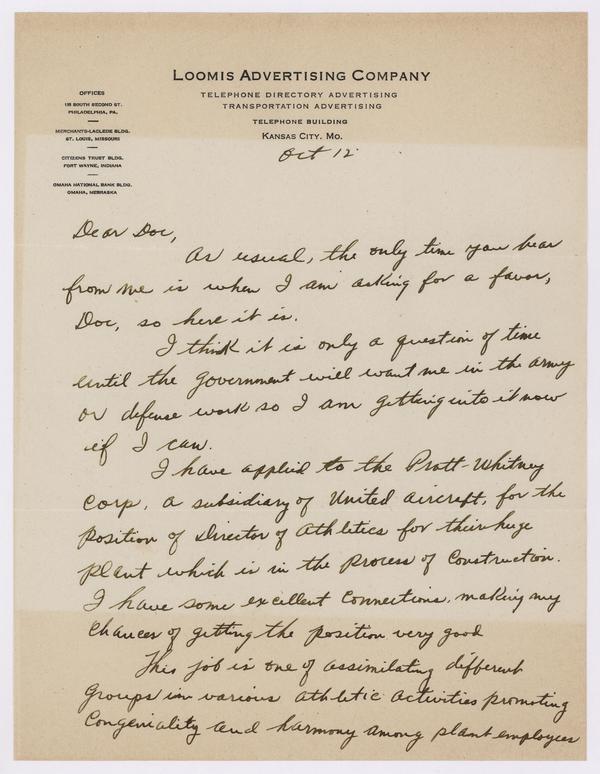 LOOMIS ADVERTISING COMPANY
TELEPHONE DIRECTORY ADVERTISING
TRANSPORTATION ADVERTISING
TELEPHONE BUILDING
KANSAS CITY, MO.
OFFICES
135 SOUTH SECOND ST.
PHILADELPHIA, PA.
MERCHANTS-LACLEDE BLDG.
ST. LOUIS, MISSOURI
CITIZENS TRUST BLDG.
FORT WAYNE, INDIANA
OMAHA NATIONAL BANK BLDG.
OMAHA, NEBRASKA
Oct 12
Dear Doc,
As usual, the only time you hear
from me is when I am asking for a favor,
Doc, so here it is.
I think it is only a question of time
until the government will want me in the army
or defense work so I am getting into it now
if I can.
I have applied to the Pratt-Whitney
Corp, a subsidiary of United Aircraft, for the
position of Director of Athletics for their huge
plant which is in the process of Construction.
I have some excellent connections, making my
chances of getting the position very good
This job is one of assimilating different
groups in various athletic activities promoting
congeniality and harmony among plant employees